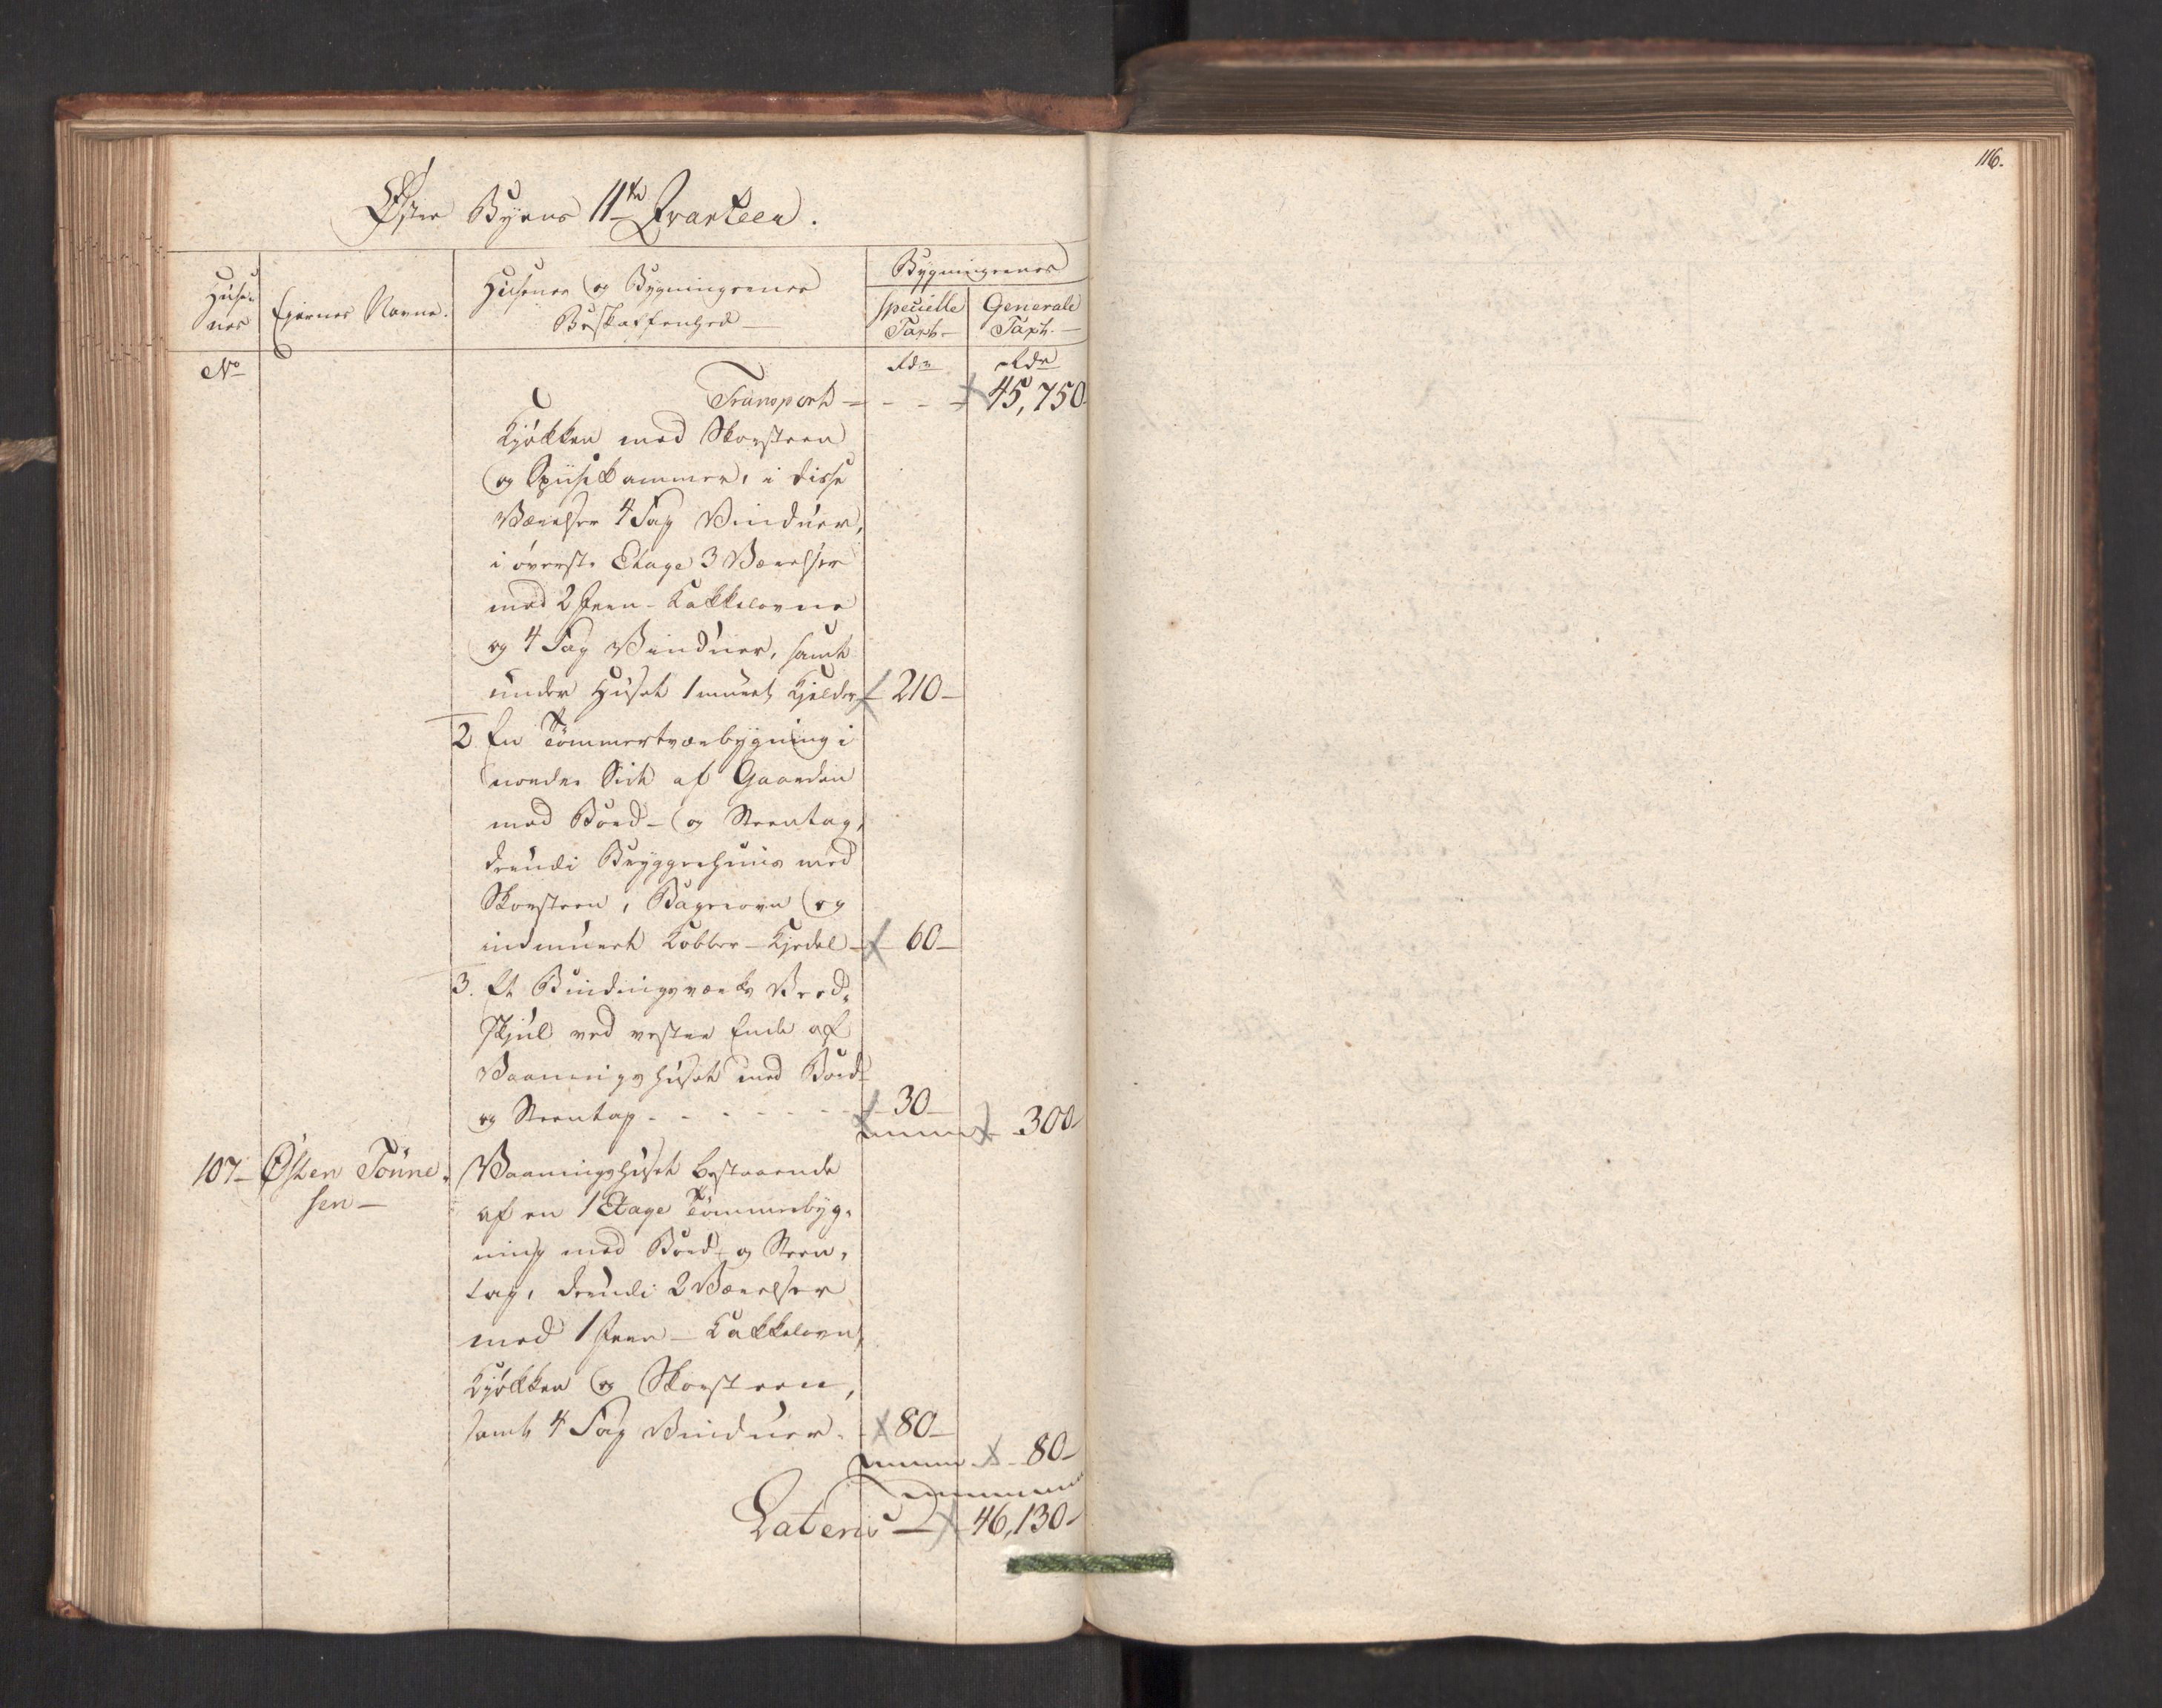 116.
Øster Byens 11te Qvarteer.
Huse-
nes
Ejernes Navne.
Husenes og Bygningernes
Beskaffenhed
Bygningernes
specielle
Taxt.
Generale
Taxt.
No
Rdr
Rdr
Transport 45,750
Kjøkken med Skorsteen
og Spiisekammer, i disse
Værelser 4 Fag Vinduer,
i øverste Etage 3 Værelser
med 2 Jern-Kakkelovne
og 4 Fag Vinduer, samt
under Huset 1 muret Kjelder 210
2 En Tømmertværbygning i
nordre Side af Gaarden
med Bord- og Steentag,
derudi Bryggerhuus med
Skorsteen, Bagerovn og
indmuret Kobber-Kjedel 60
3. Et Bindingsværks Ved-
skjul ved vestre Ende af
Vaaningshuset med Bord-
og Steentag 30
300
107 Østen Tønne-
sen
Vaaningshuset bestaaende
af en 1 Etage Tømmerbyg-
ning med Bord- og Steen-
tag, derudi 2 Værelser
med 1 Jern-Kakkelovn,
Kjøkken og Skorsteen,
samt 4 Fag Vinduer. 80
80
Lateris 46,130